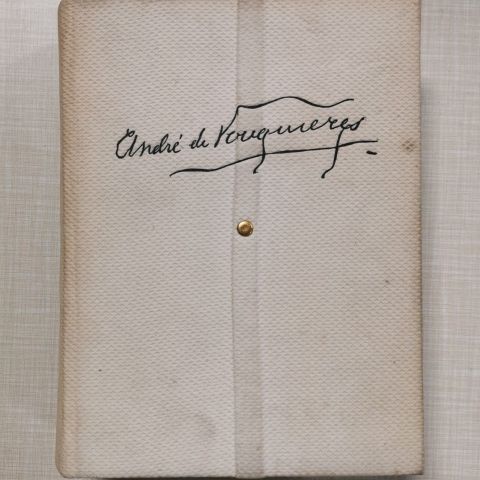 André de Fouquières